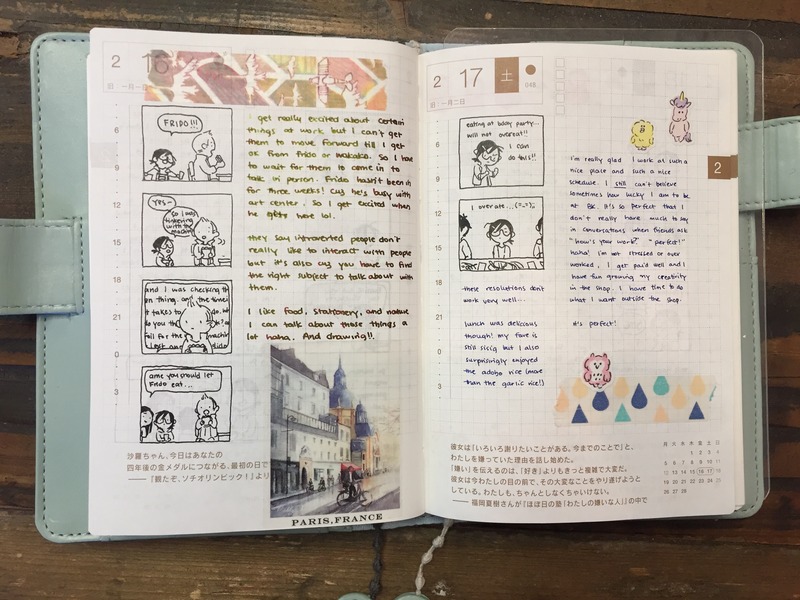 2
16
旧 : 一月一日
6
9
12
15
18
21
0
3
FRIDO!!!
YES-
So I was
tinkering
with the
machine
And I was checking th
on thing. and the timei
t takes to
do you th
ame you should let
Frido eat...
I get really excited about certain
things at work but I can't get
them to move forward till I get
ok from Frido or Wakako. So I have
to wait for them to come in to
talk in person. Frido hasn't been in
for three weeks! Cuz he's busy with
art center. So I get excited when
he gets here lol.
They say introverted people don't
really like to interact with people
but it's also cuz you have to find
the right subject to talk about with
them.
I like food, stationery, and nature
I can talk about those things a
lot haha. And drawing!!
沙羅ちゃん、今日はあなたの
四年後の金メダルにつながる、最初の日で
── 「観たぞ、ソチオリンピック!」より
PARIS, FRANCE
2
17
土
048
旧 : 一月二日
6
9
12
15
18
21
0
3
eating at bday party...
will not overeat!!
I can
do this!!
I overate...(=_=);;
these resolutions don't
work very well...
lunch was delicious
though! my fave is
still sisig but I also
surprisingly enjoyed
the adobo rice (more
than the garlic rice!)
I'm really glad I work at such a
nice place and such a nice
schedule. I still can't believe
sometimes how lucky I am to be
at BK. It's so perfect that I
don't really have much to say
in conversations when friends ask
"how's your work" "perfect!"
haha! I'm not stressed or over
worked, I get paid well and I
have fun growing my creativity
in the shop. I have time to do
what I want outside the shop.
It's perfect!
2
彼女は「いろいろ謝りたいことがある。今までのことで」と、
わたしを嫌っていた理由を話し始めた。
「嫌い」を伝えるのは、「好き」よりもきっと複雑で大変だ。
彼女は今わたしの目の前で、その大変なことをやり遂げようと
している。わたしも、ちゃんとしなくちゃいけない。
── 福岡夏樹さんが『ほぼ日の塾「わたしの嫌いな人」』の中で
月 火 水 木 金 土 日
1 2 3 4
5 6 7 8 9 10 11
12 13 14 15 16 17 18
19 20 21 22 23 24 25
26 27 28